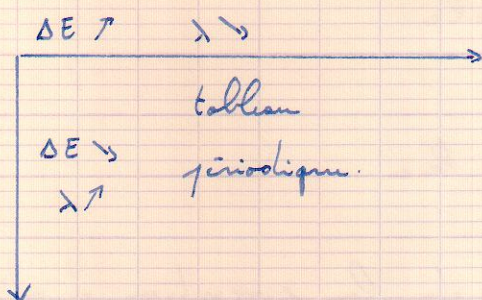 ΔE ↗ λ ↘
tableau
ΔE ↘
périodique.
λ ↗